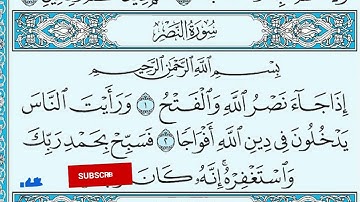 سُورَةُ النَّصْرِ
بِسْمِ اللَّهِ الرَّحْمَٰنِ الرَّحِيمِ
إِذَا جَآءَ نَصْرُ اللَّهِ وَالْفَتْحُ ١ وَرَأَيْتَ النَّاسَ
يَدْخُلُونَ فِى دِينِ اللَّهِ أَفْوَاجًا ٢ فَسَبِّحْ بِحَمْدِ رَبِّكَ
وَاسْتَغْفِرْهُ إِنَّهُ كَانَ
SUBSCRB